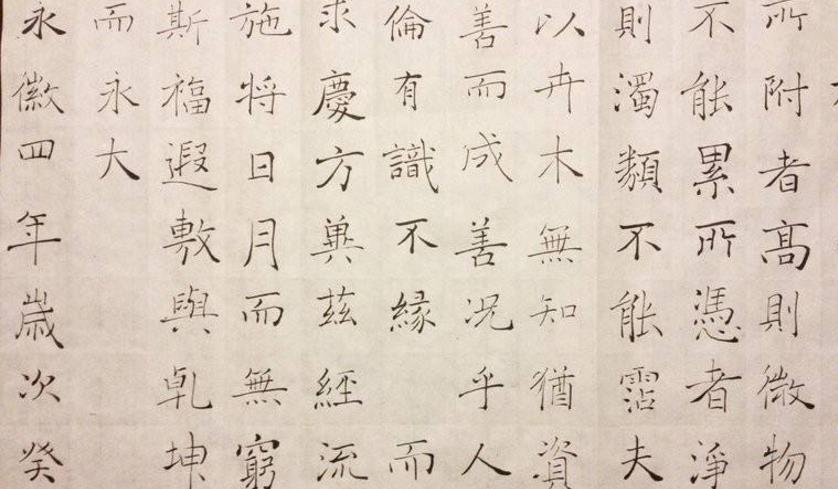 所附者高則微物
不能累所憑者淨
則濁類不能霑夫
以卉木無知猶資
善而成善况乎人
倫有識不緣 而
求慶方冀茲經流
施將日月而無窮
斯福遐敷與乾坤
而永大
永徽四年歲次癸